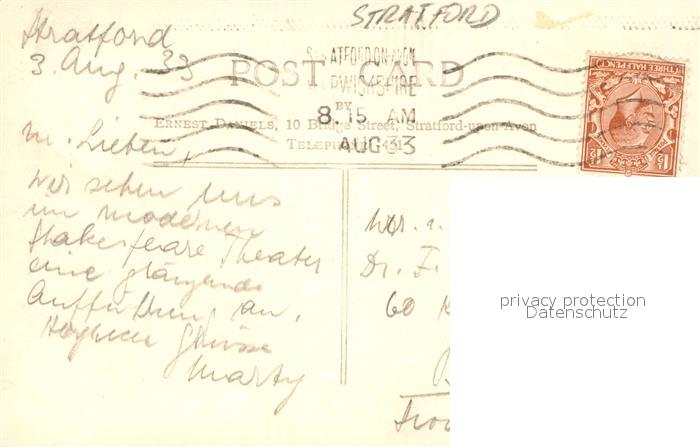 STRATFORD
Stratford
3. Aug. 33
POST CARD
STRATFORD-ON-AVON
8. 15 AM
AUG 33
BY
ERNEST DANIELS, 10 Bridge Street, Stratford-upon-Avon
TELEPHONE
THREE HALF PENCE
1½ 1½
M. Lieben,
wir sehen uns
im modernen
Shakespeare Theater
eine glänzende
Aufführung an.
Grüsse
Marty
Dr. F.
60
privacy protection
Datenschutz